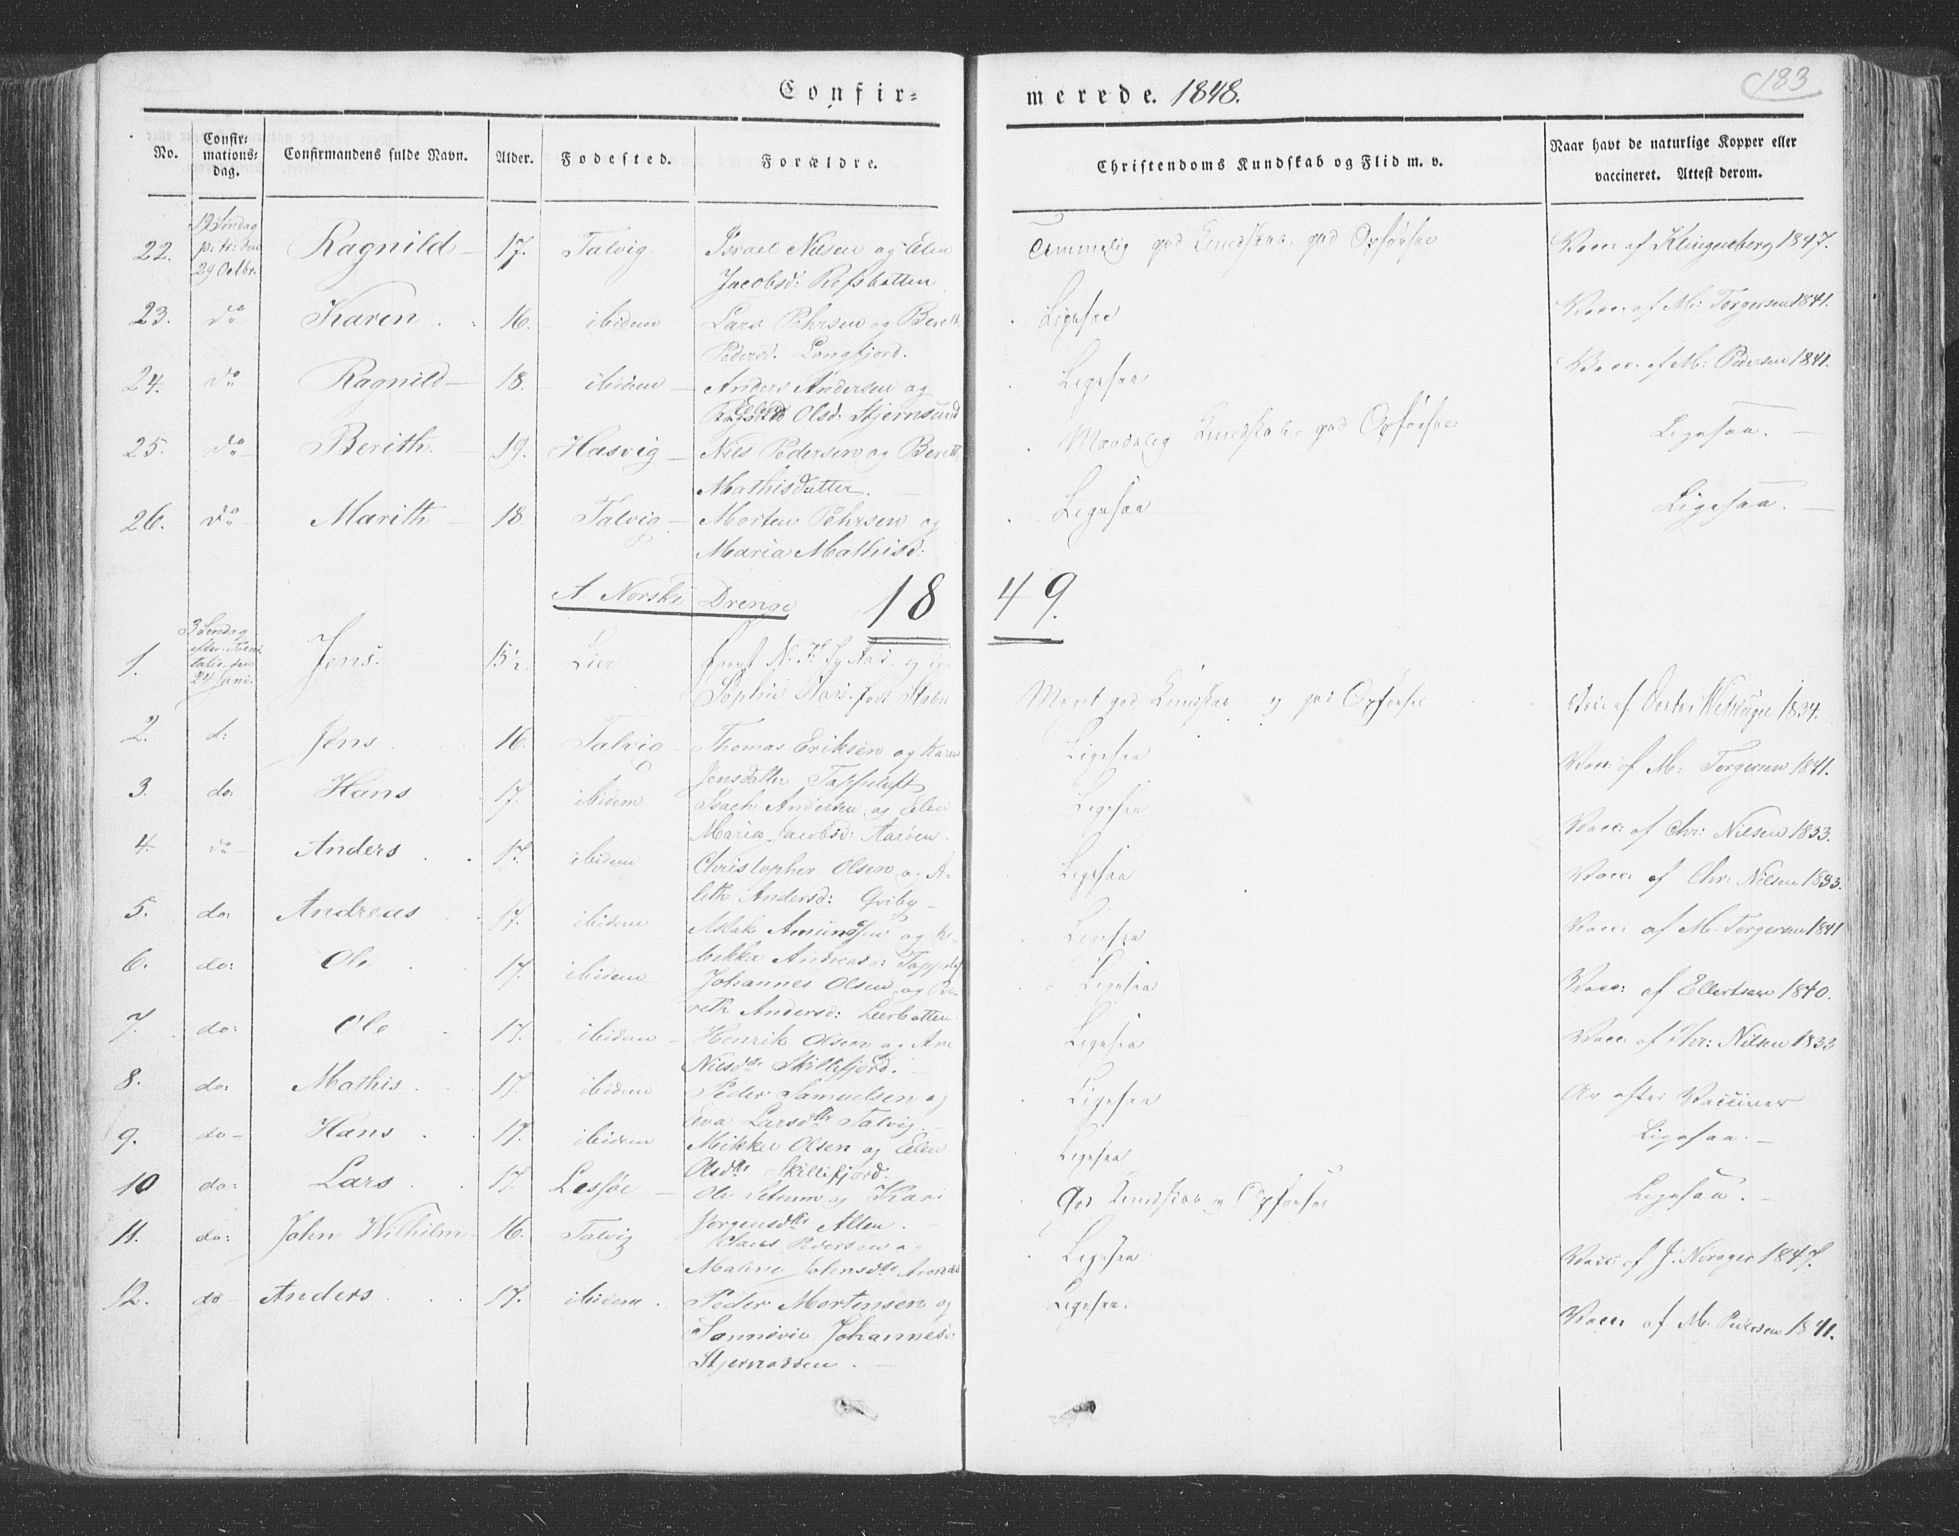 Confir-
merede. 1848.
183
No.
Confir-
mations-
dag.
Confirmandens fulde Navn.
Alder.
Fødested.
Forældre.
Christendoms Kundskab og Flid m. v.
Naar havt de naturlige Kopper eller
vaccineret. Attest derom.
22. 19 Søndag p: tr: den 29 Octbr. Ragnild 17. Talvig. Israel Nilsen og Elen Temmelig god Kundskab, god Opførsel Vacc: af Klingenberg 1847.
Jacobsd: Refsbotten
23. do Karen 16. ibidem Lars Pehrsen og Bereth Ligesaa Vacc: af M: Torgersen 1841.
Pedersd. Langfjord.
24. do Ragnild 18. ibidem Anders Andersen og Ligesaa Vacc: af M: Pedersen 1841.
Elen Olsd. Stjernsund
25. do Berith 19. Hasvig Niels Pedersen og Bereth Maadelig Kundskab, god Opførsel Ligesaa.
Mathisdatter.
26. do Marith 18. Talvig Morten Pehrsen og Ligesaa Ligesaa.
Maria Mathisd:
A. Norske Drenge 1849.
1. 3 Søndag efter Trini- tatis den 24 Juni. Jens. 15½. Lier
Sophie født Meget god Kundskab og god Opførsel Vacc: af Doctor 1834.
2. d: Jens 16. Talvig Thomas Eriksen og Karen Ligesaa Vacc: af M: Torgersen 1841.
Jensdatter Tappeluft
3. do: Hans 17. ibidem Isach Andersen og Elen Ligesaa Vacc: af Chr: Nilsen 1833.
Maria Jacobsd: Aarøen.
4. do Anders 17. ibidem Christopher Olsen og A- Ligesaa Vacc: af Chr: Nilsen 1833.
leth Andersd: Qviby
5. do: Andreas 17. ibidem Aslak Amundsen og Re- Ligesaa Vacc: af M. Torgersen 1841
bekka Andreasd: Tappeluft
6. do: Ole 17. ibidem Johannes Olsen og Be- Ligesaa Vacc: af Ellertsen 1840.
reth Andersd: Leerbotten
7. do: Ole 17. ibidem Henrik Olsen og Ane Ligesaa Vacc: af Chr: Nilsen 1833
Nilsdtr Skillefjord.
8. do: Mathis 17. ibidem Peder Samuelsen og Ligesaa Ar efter Vacciner
Eva Larsdtr Talvig.
9. do Hans 17. ibidem Mikkel Olsen og Elen Ligesaa Ligesaa.
Olsdtr Skillefjord.
10 do: Lars 17. Lessøe Ole og Kari God Kundskab og Opførsel Ligesaa.
Jørgensdtr Alten.
11. do: John Wilhilm 16. Talvig Claus Pedersen og Ligesaa Vacc: af J. Norager 1847.
Malene Johnsdtr
12. do Anders 17. ibidem. Peder Mortensen og Ligesaa. Vacc: af M. Pedersen 1841.
Sannevie Johannesd: